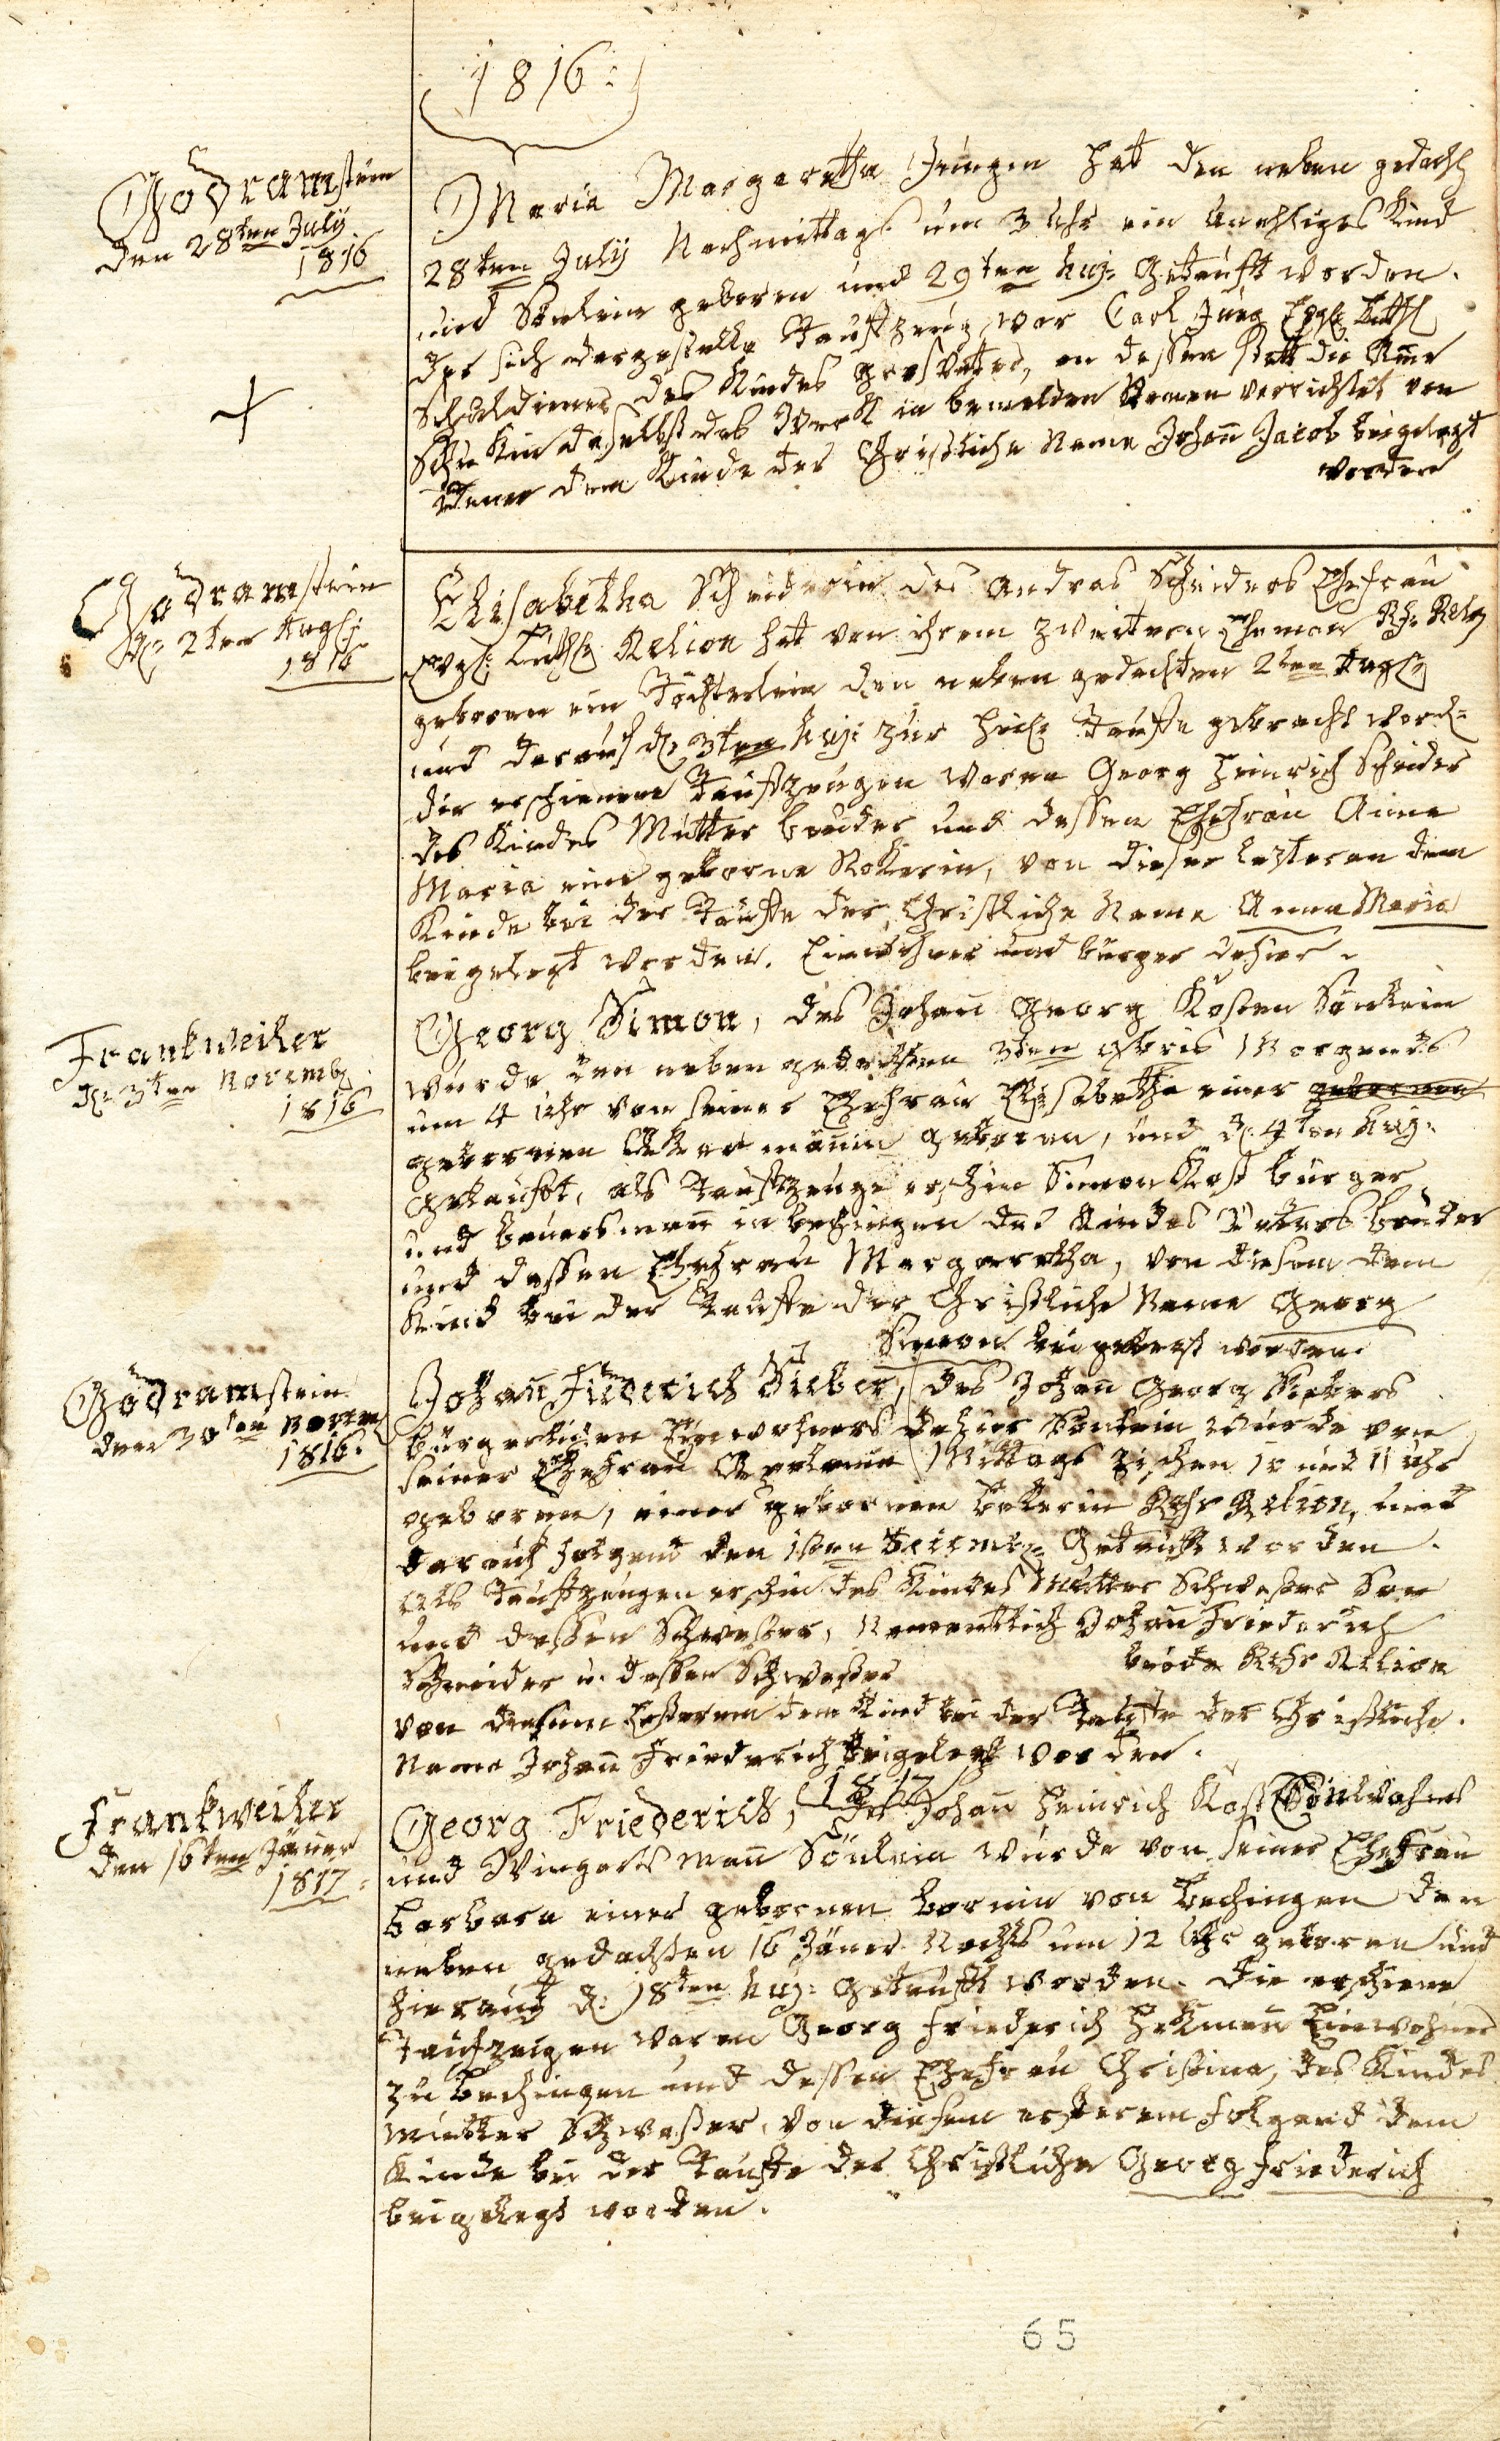 1816:
Gödramstein
den 28ten July
1816
Maria Margaretha Jungen hat den neben gedacht
28ten July Nachmittags um 3 Uhr ein Unehliges Kind
und Sönlein geboren und 29ten huj: getauft worden.
der sich dargestelte Taufzeug war Carl Jung
des Kindes grosvater, an dessen statt die
daselbst das Werk in bemelden Namen verrichtet von
dem Kinde der Christliche Name Johañ Jacob beigelegt
worden
Gödramstein
d: 2ten Augst:
1816
Elisabetha Schneiderin des Andreas Schneiders Ehefrau
Relion hat von ihrem zweiten Eheman
geboren ein Töchterlein den neben gedachten 2ten Augst
und darauf d: 3ten huj: zur heil: Taufe gebracht word=
die erschienene Taufzeugen waren Georg Heinrich Schneider
des Kindes Mutter bruder und dessen Ehefrau Anna
Maria eine geborne, von dieser lezteren dem
Kinde bei der Taufe der Christliche Name Anna Maria
beigelegt worden. Einwohner und burger dahier.
Frankweiler
d: 3ten Novemb:
1816
Georg Simon, des Johañ Georg Kosten Sönlein
wurde den neben gedachten 3ten 9bris Morgends
um 4 Uhr von seiner Ehefrau Elisabetha einer gebornen
gebornen Akermänin geboren, und d. 4ten huj:
getaufft, als Taufzeuge erschin Simon Kost burger
und bauersmañ in bechingen des Kindes Vaters bruder
und dessen Ehefrau Margaretha, von diesem dem
Kind bei der Tauffe der Christliche Name Georg
Simon beigelegt worden
Gödramstein
den 30ten Novem
1816.
Johañ Friederich Sieber, des Johañ Georg Siebers
bürgerlichen Einwohners dahier Sönlein wurde von
seiner Ehefrau Mittags zischen 10 und 11 Uhr
geboren, einer gebornen Bekerin Refr Relion, und
darauf folgend den 1sten Decemb: getauft worden.
Als Taufzeugen erschin des Kindes Mutter Schwester Son
und dessen Schwester, Namentlich Johañ Friederich
Schneider u. dessen Schwester beide Refr Relion
von diesem Ersteren dem Kind bei der Taufe der Christliche
Name Johañ Friederich beigelegt worden.
1817
Frankweiler
den 16ten Jäner
1817.
Georg Friederich, des Johañ Heinrich Kost Einwohners
und Wingertsmañ Sönlein wurde von seiner Ehefrau
Barbara einer gebornen Bornin von Bechingen den
neben gedachten 16 Jäner Nachts um 12 Uhr geboren und
hierauf d: 18ten huj: getauft worden. Die erschiene
Taufzeugen waren Georg Friederich Einwohner
zu Bechingen und dessen Ehefrau Christina, des Kindes
mutter Schwester, von diesem ersterem folgend dem
Kinde bei der Taufe der Christliche Georg Friederich
beigelegt worden.
65